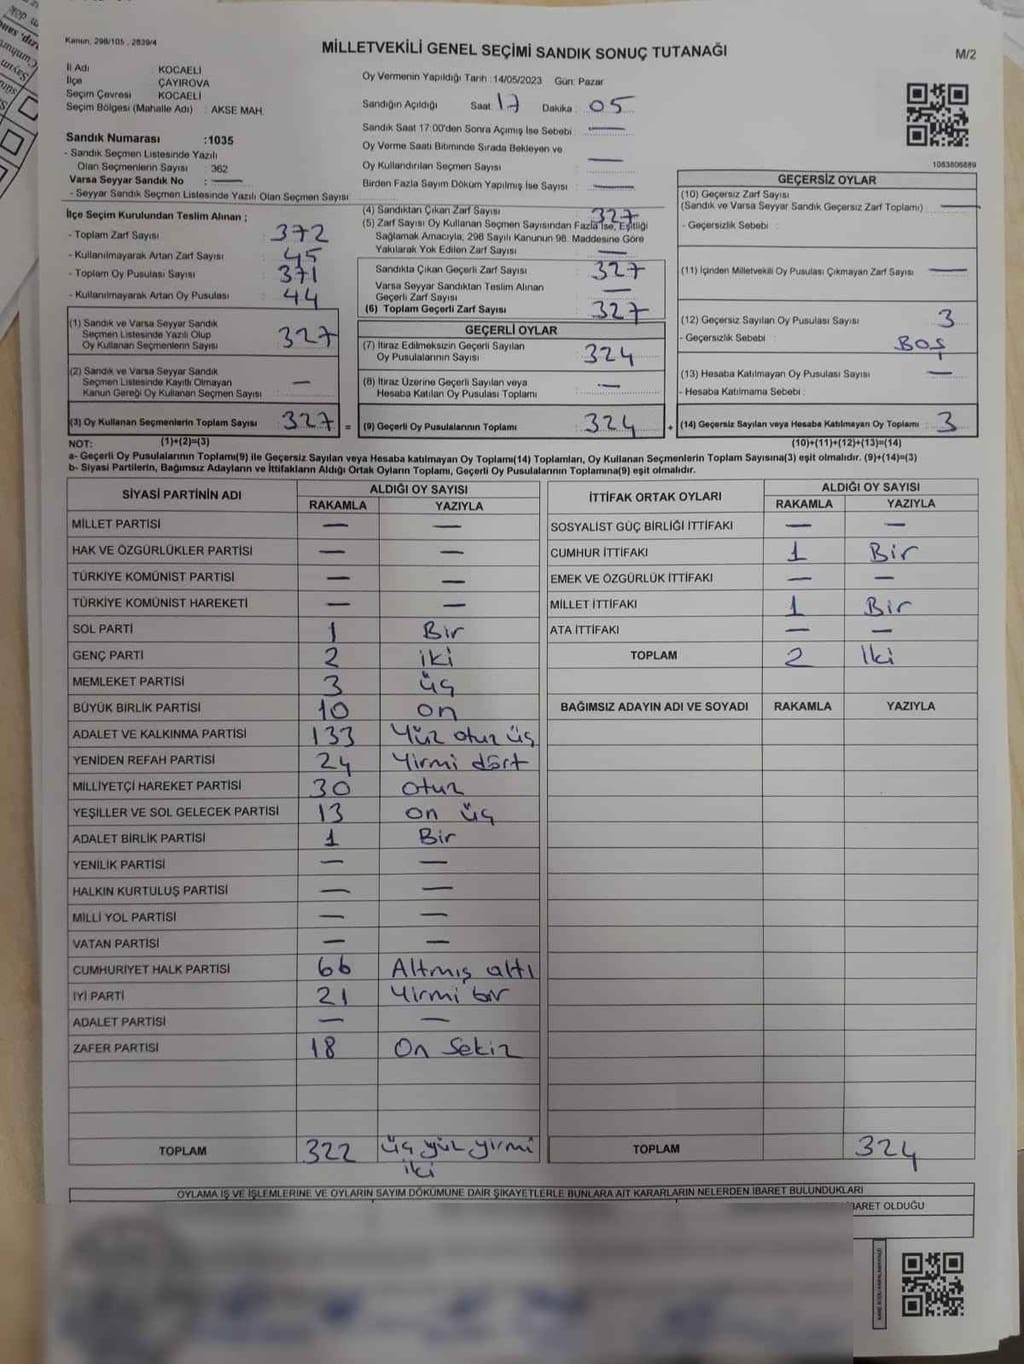 Kanun, 298/105 , 2839/4
MİLLETVEKİLİ GENEL SEÇİMİ SANDIK SONUÇ TUTANAĞI
M/2
İl Adı KOCAELİ
İlçe ÇAYIROVA
Seçim Çevresi KOCAELİ
Seçim Bölgesi (Mahalle Adı) : AKSE MAH.
Oy Vermenin Yapıldığı Tarih :14/05/2023 Gün: Pazar
Sandığın Açıldığı Saat 17 Dakika : 05
Sandık Saat 17:00'den Sonra Açımış İse Sebebi : —
Oy Verme Saati Bitiminde Sırada Bekleyen ve
Oy Kullandırılan Seçmen Sayısı —
Birden Fazla Sayım Döküm Yapılmış İse Sayısı : —
1083806889
Sandık Numarası :1035
- Sandık Seçmen Listesinde Yazılı
Olan Seçmenlerin Sayısı : 362
Varsa Seyyar Sandık No : —
- Seyyar Sandık Seçmen Listesinde Yazılı Olan Seçmen Sayısı
İlçe Seçim Kurulundan Teslim Alınan ;
- Toplam Zarf Sayısı 372
- Kullanılmayarak Artan Zarf Sayısı 45
- Toplam Oy Pusulası Sayısı 371
- Kullanılmayarak Artan Oy Pusulası 44
(1) Sandık ve Varsa Seyyar Sandık
Seçmen Listesinde Yazılı Olup
Oy Kullanan Seçmenlerin Sayısı 327
(2) Sandık ve Varsa Seyyar Sandık
Seçmen Listesinde Kayıtlı Olmayan
Kanun Gereği Oy Kullanan Seçmen Sayısı —
(3) Oy Kullanan Seçmenlerin Toplam Sayısı 327 =
(4) Sandıktan Çıkan Zarf Sayısı 327
(5) Zarf Sayısı Oy Kullanan Seçmen Sayısından Fazla İse, Eşitliği
Sağlamak Amacıyla, 298 Sayılı Kanunun 98. Maddesine Göre
Yakılarak Yok Edilen Zarf Sayısı —
Sandıkta Çıkan Geçerli Zarf Sayısı 327
Varsa Seyyar Sandıktan Teslim Alınan
Geçerli Zarf Sayısı —
(6) Toplam Geçerli Zarf Sayısı 327
GEÇERLİ OYLAR
(7) İtiraz Edilmeksizin Geçerli Sayılan
Oy Pusulalarının Sayısı 324
(8) İtiraz Üzerine Geçerli Sayılan veya
Hesaba Katılan Oy Pusulası Toplamı : —
(9) Geçerli Oy Pusulalarının Toplamı 324 +
GEÇERSİZ OYLAR
(10) Geçersiz Zarf Sayısı
(Sandık ve Varsa Seyyar Sandık Geçersiz Zarf Toplamı) —
- Geçersizlik Sebebi :
(11) İçinden Milletvekili Oy Pusulası Çıkmayan Zarf Sayısı —
(12) Geçersiz Sayılan Oy Pusulası Sayısı 3
- Geçersizlik Sebebi BOŞ
(13) Hesaba Katılmayan Oy Pusulası Sayısı —
- Hesaba Katılmama Sebebi :
(14) Geçersiz Sayılan veya Hesaba Katılmayan Oy Toplamı 3
NOT: (1)+(2)=(3) (10)+(11)+(12)+(13)=(14)
a- Geçerli Oy Pusulalarının Toplamı(9) ile Geçersiz Sayılan veya Hesaba katılmayan Oy Toplamı(14) Toplamları, Oy Kullanan Seçmenlerin Toplam Sayısına(3) eşit olmalıdır. (9)+(14)=(3)
b- Siyasi Partilerin, Bağımsız Adayların ve İttifakların Aldığı Ortak Oyların Toplamı, Geçerli Oy Pusulalarının Toplamına(9) eşit olmalıdır.
SİYASİ PARTİNİN ADI ALDIĞI OY SAYISI
RAKAMLA YAZIYLA
MİLLET PARTİSİ — —
HAK VE ÖZGÜRLÜKLER PARTİSİ — —
TÜRKİYE KOMÜNİST PARTİSİ — —
TÜRKİYE KOMÜNİST HAREKETİ — —
SOL PARTİ 1 Bir
GENÇ PARTİ 2 iki
MEMLEKET PARTİSİ 3 üç
BÜYÜK BİRLİK PARTİSİ 10 on
ADALET VE KALKINMA PARTİSİ 133 Yüz otuz üç
YENİDEN REFAH PARTİSİ 24 Yirmi dört
MİLLİYETÇİ HAREKET PARTİSİ 30 otuz
YEŞİLLER VE SOL GELECEK PARTİSİ 13 on üç
ADALET BİRLİK PARTİSİ 1 Bir
YENİLİK PARTİSİ — —
HALKIN KURTULUŞ PARTİSİ — —
MİLLİ YOL PARTİSİ — —
VATAN PARTİSİ — —
CUMHURİYET HALK PARTİSİ 66 Altmış altı
İYİ PARTİ 21 Yirmi bir
ADALET PARTİSİ — —
ZAFER PARTİSİ 18 On Sekiz
TOPLAM 322 üç yüz yirmi
iki
İTTİFAK ORTAK OYLARI ALDIĞI OY SAYISI
RAKAMLA YAZIYLA
SOSYALİST GÜÇ BİRLİĞİ İTTİFAKI — —
CUMHUR İTTİFAKI 1 Bir
EMEK VE ÖZGÜRLÜK İTTİFAKI — —
MİLLET İTTİFAKI 1 Bir
ATA İTTİFAKI — —
TOPLAM 2 İki
BAĞIMSIZ ADAYIN ADI VE SOYADI RAKAMLA YAZIYLA
TOPLAM 324
OYLAMA İŞ VE İŞLEMLERİNE VE OYLARIN SAYIM DÖKÜMÜNE DAİR ŞİKAYETLERLE BUNLARA AİT KARARLARIN NELERDEN İBARET BULUNDUKLARI
İBARET OLDUĞU